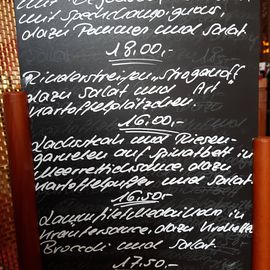 mit Speckchampignons,
dazu Pommes und Salat.
18.00,-
Rinderstreifen „Stroganoff"
dazu Salat und Art
Kartoffelplätzchen.
16.00,-
Lachssteak und Riesen-
garnelen auf Spinatbett in
Meerrettichsauce, dazu
Kartoffelpuffer und Salat
16.50-
Lammfiletmedaillons in
Kräutersauce, dazu
Broccoli und Salat.
17.50,-